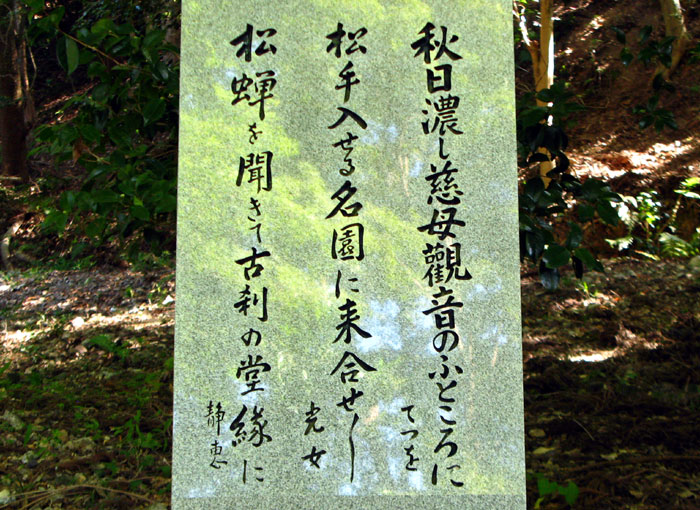 秋日濃し慈母觀音のふところに
てつを
松手入せる名園に来合せし
光女
松蝉を聞きて古刹の堂縁に
静恵